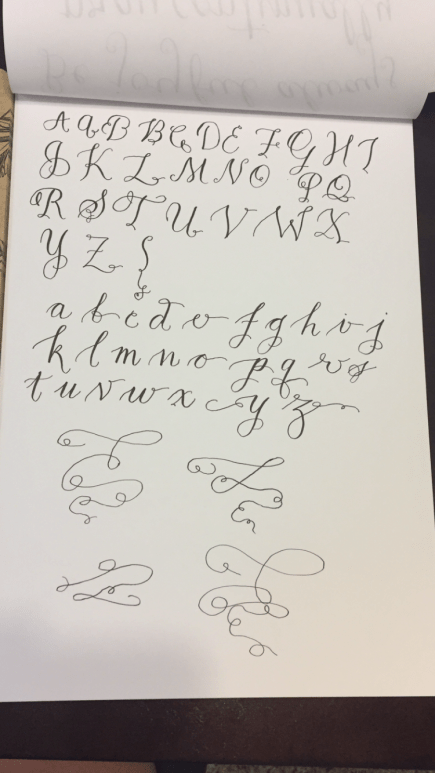 A a B B C D E F G H I
J K L M N O P Q
R S T U V W X
Y Z
a b c d e f g h i j
k l m n o p q r s
t u v w x y z